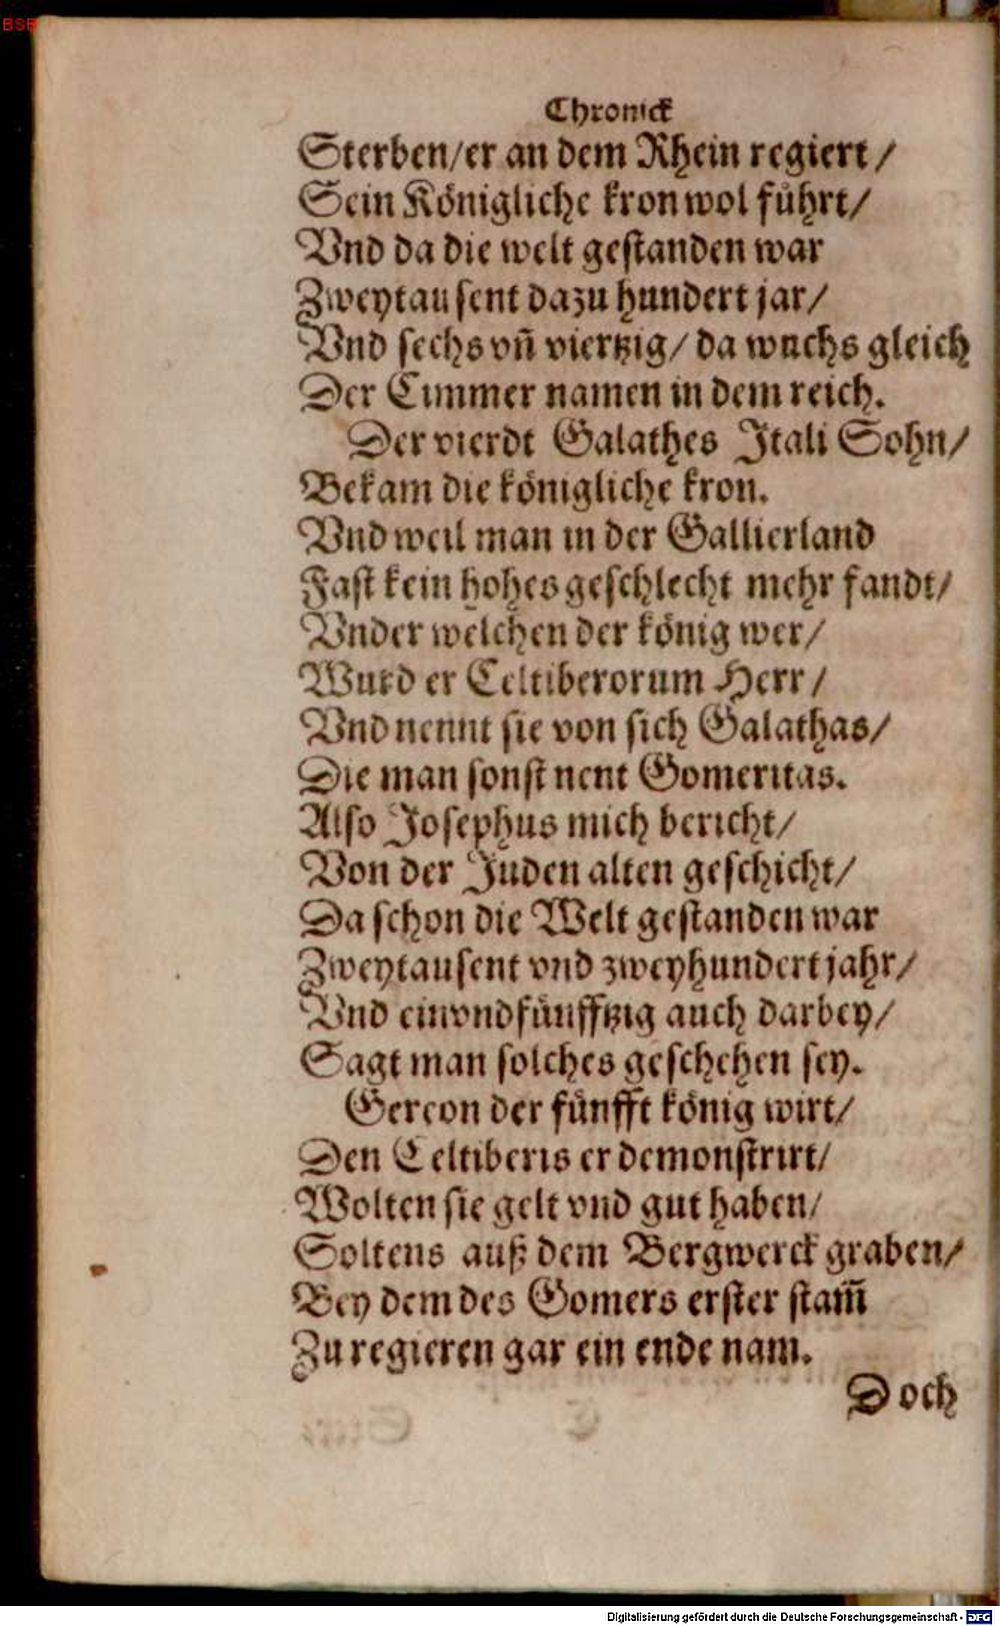 BSB
Chronick
Sterben/er an dem Rhein regiert/
Sein Königliche kron wol führt/
Vnd da die welt gestanden war
Zweytausent dazu hundert jar/
Vnd sechs vñ viertzig/ da wuchs gleich
Der Cimmer namen in dem reich.
Der vierdt Galathes Itali Sohn/
Bekam die königliche kron.
Vnd weil man in der Gallierland
Fast kein hohes geschlecht mehr fandt/
Vnder welchen der könig wer/
Wurd er Celtiberorum Herr/
Vnd nennt sie von sich Galathas/
Die man sonst nent Gomeritas.
Also Josephus mich bericht/
Von der Juden alten geschicht/
Da schon die Welt gestanden war
Zweytausent vnd zweyhundert jahr/
Vnd einvndfünfftzig auch darbey/
Sagt man solches geschehen sey.
Gereon der fünfft könig wirt/
Den Celtiberis er demonstrirt/
Wolten sie gelt vnd gut haben/
Soltens auß dem Bergwerck graben/
Bey dem des Gomers erster stam̃
Zu regieren gar ein ende nam.
Doch
Digitalisierung gefördert durch die Deutsche Forschungsgemeinschaft - DFG